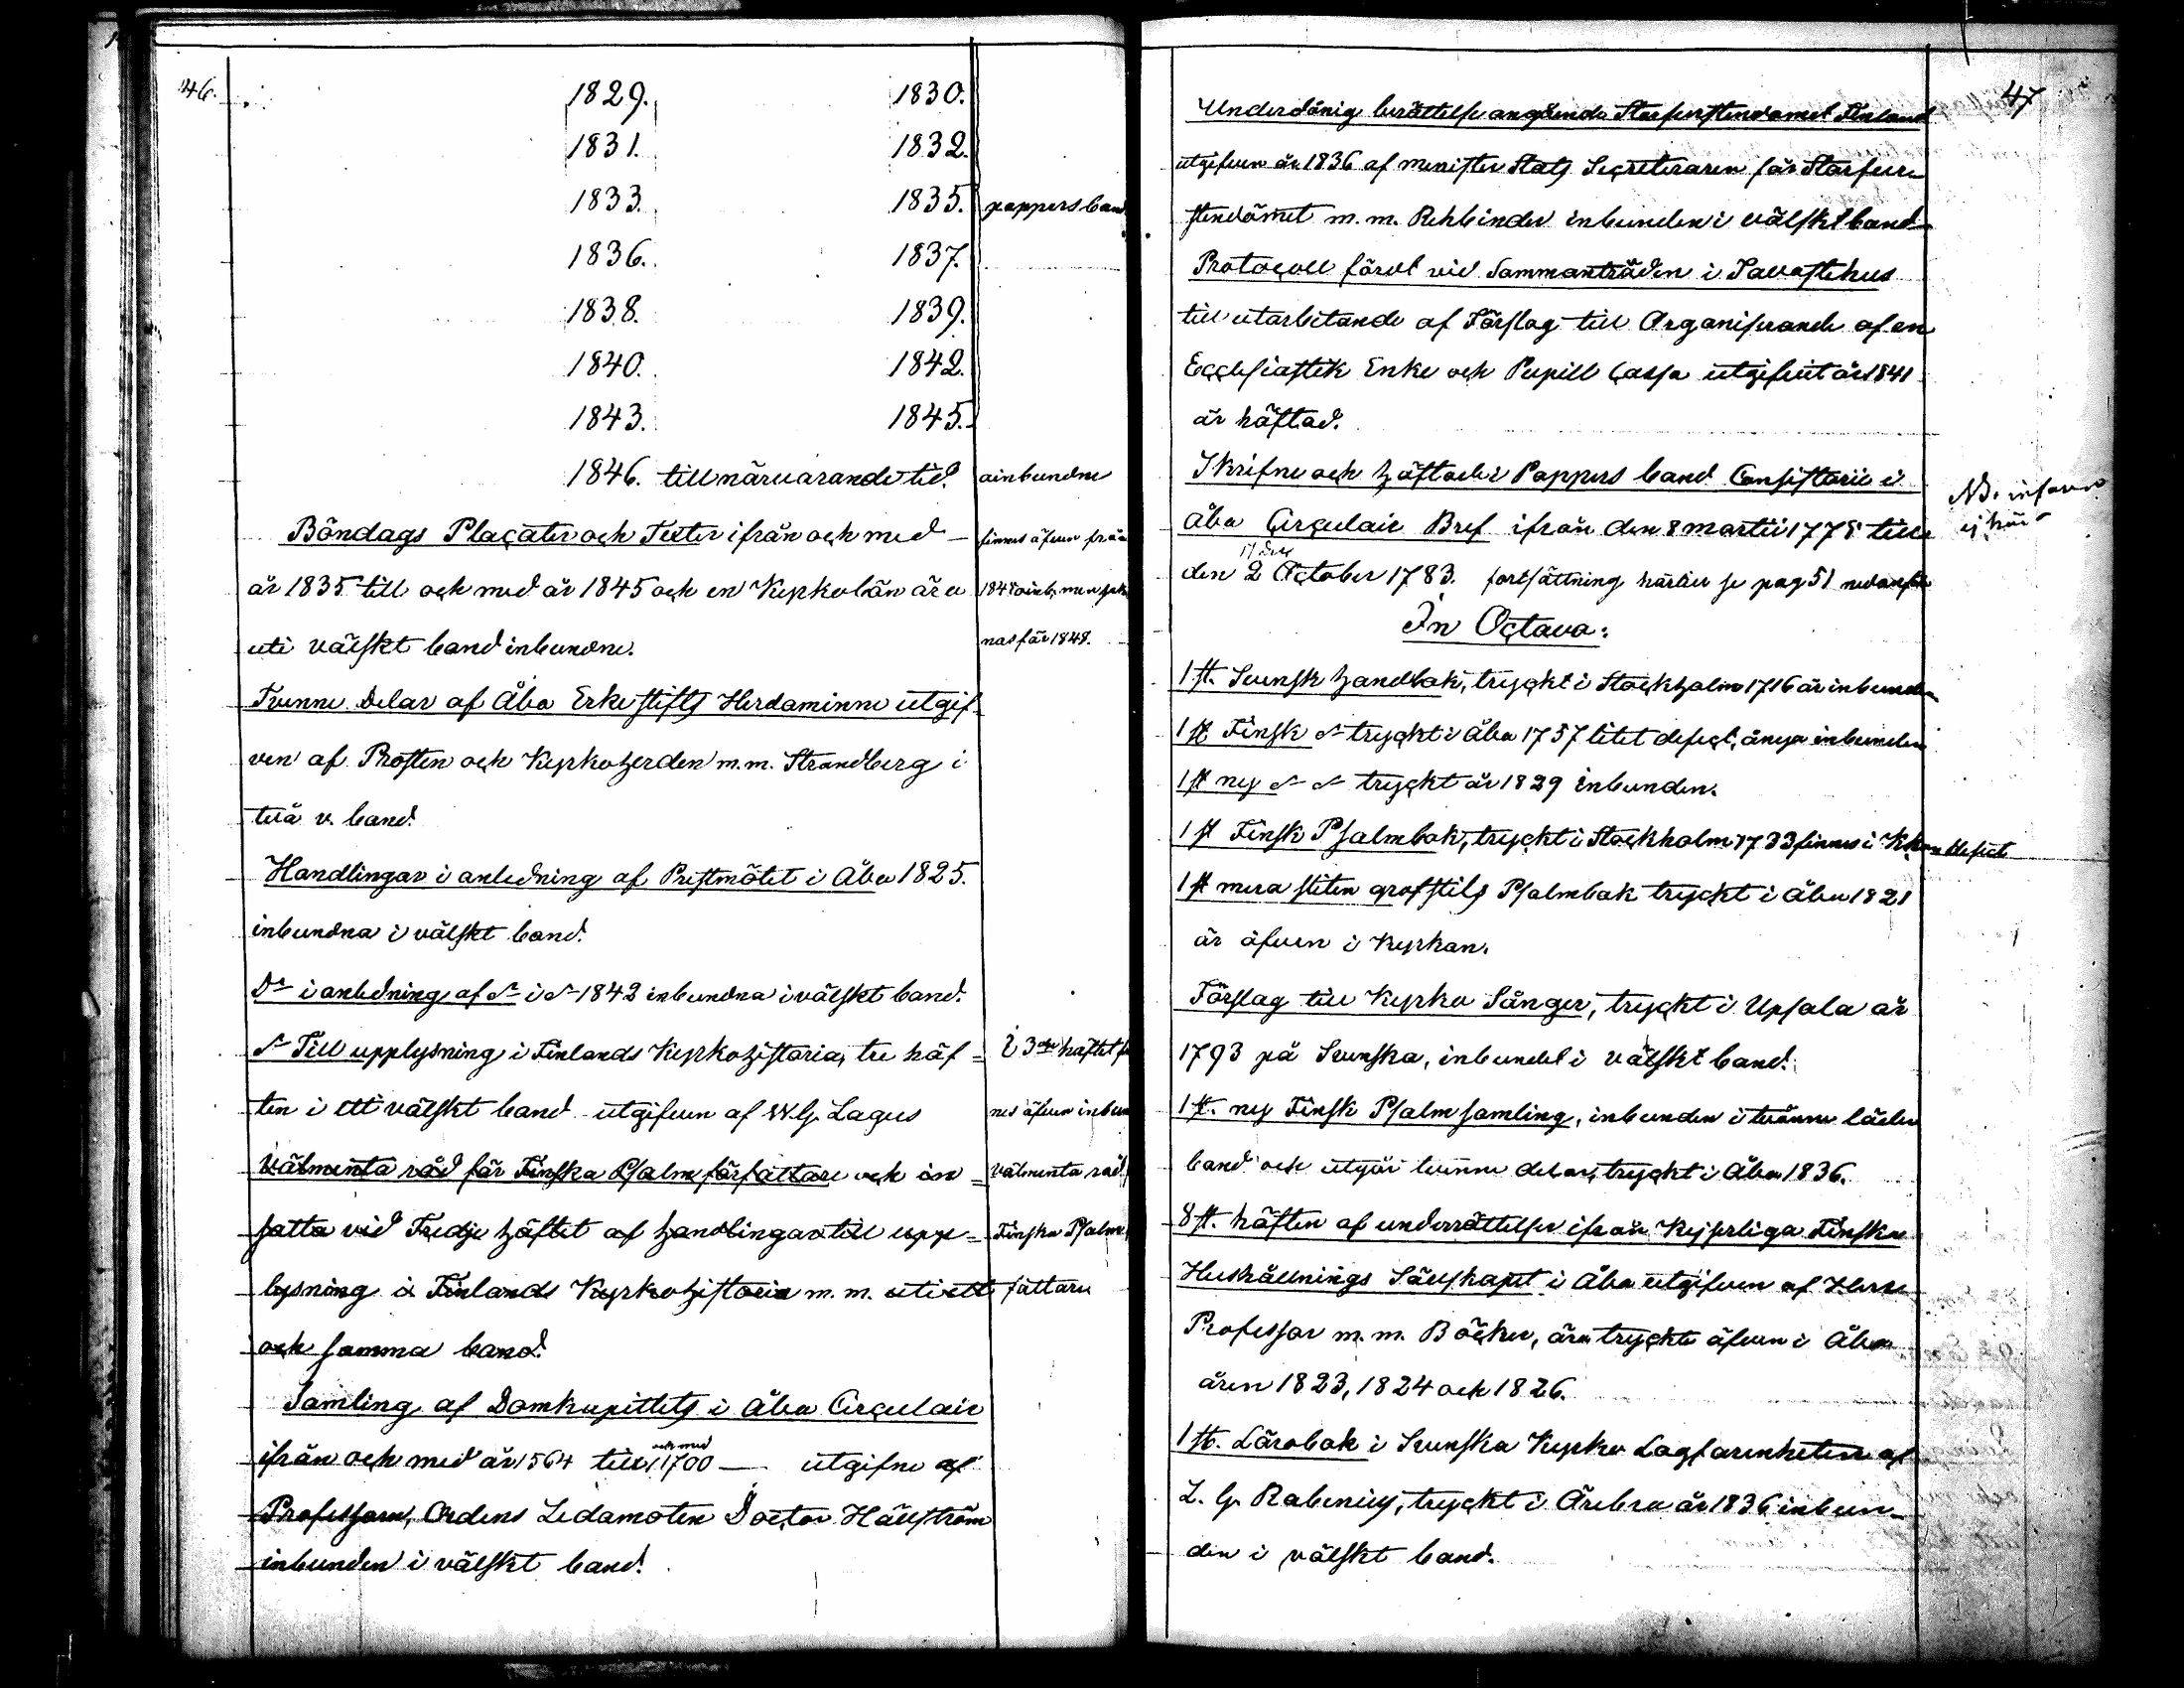 46.
1829. 1830.
1831. 1832.
1833. 1835. pappersband
1836. 1837.
1838. 1839.
1840. 1842.
1843. 1845.
1846. till närvarande tid. oinbundne
Böndags Placater och Texter ifrån och med finnes äfven från
år 1835 till och med år 1845 och en Kyrkolån äro 1845 oinb. men sak
uti välskt band inbundne. nas för 1848.
Trenne Delar af Åbo Erkestifts Herdaminne utgif-
ven af Prosten och Kyrkoherden m.m. Strandberg i
två v. band.
Handlingar i anledning af Prestmötet i Åbo 1825.
inbundna i välskt band.
Do i anledning af do i do 1842 inbundna i välskt band.
do Till upplysning i Finlands Kyrkohistoria, tre häf- i 3dje häftet fin
ten i ett välskt band utgifven af W. G. Lagus nes äfven inbun
Välmenta råd för Finska Psalmförfattare och in- välmenta råd
satta vid Tredje häftet af handlingar till upp- Finska Psalm
lysning i Finlands Kyrkohistoria m.m. uti ett fattare
och samma band.
Samling af Domkapitlets i Åbo Circulair
ifrån och med år 1564 till och med 1700 — utgifne af
Professorn, Ordens Ledamoten Doctor Hällström
inbunden i välskt band.
47
Underdånig berättelse angående Storfurstendömet Finland
utgifven år 1836 af Minister Stats Secreteraren för Storfur-
stendömet m.m. Rehbinder inbunden i välskt band
Protocoll fördt vid Sammanträden i Tavastehus
till utarbetande af Förslag till Organiserande af en
Ecclesiastik Enke och Pupill Cassa utgifvit år 1841
är häftad.
Skrifne och häftade i Pappers band Consistorii i NB.
Åbo Circulair Bref ifrån den 8 Martii 1775 till ej här
den 2 October 1783. fortsättning härtill se pag 51 nedanför
In Octavo:
1 st. Svensk handbok, tryckt i Stockholm 1716 är inbunden
1 st Finsk do tryckt i Åbo 1757 litet defect, även inbunden
1 st ny do do tryckt år 1829 inbunden.
1 st Finsk Psalmbok, tryckt i Stockholm 1733 finnes i Kkan defect
1 st mera sliten grofstils Psalmbok tryckt i Åbo 1821
är äfven i Kyrkan.
Förslag till Kyrko Sånger, tryckt i Upsala år
1793 på Svenska, inbundet i välskt band.
1 st. ny Finsk Psalmsamling, inbunden i tvänne läder
band och utgör tvänne delar, tryckt i Åbo 1836.
8 st. häften af underrättelser ifrån Kejserliga Finska
Hushållnings Sällskapet i Åbo utgifven af Herr
Professor m.m. Böcker, äro tryckte äfven i Åbo
åren 1823, 1824 och 1826.
1 st. Lärobok i Svenska Kyrko Lagfarenheten af
L. G. Rabenius, tryckt i Örebro år 1836 inbun-
den i välskt band.